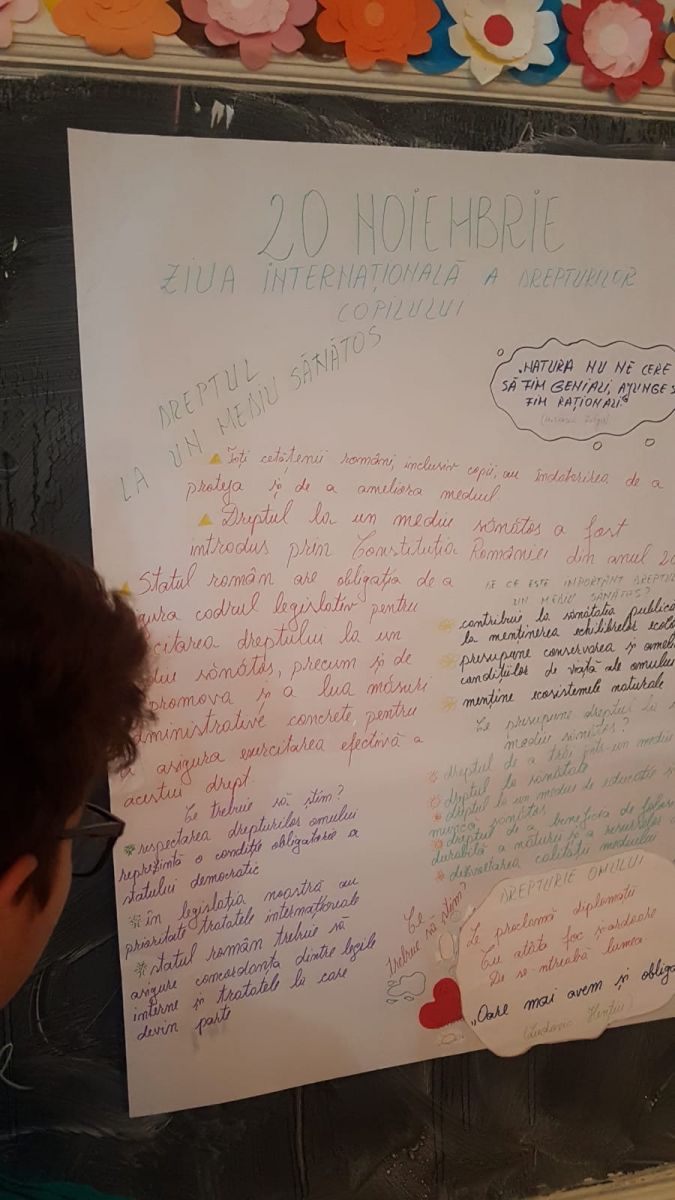 20 NOIEMBRIE
ZIUA INTERNAȚIONALĂ A DREPTURILOR
COPILULUI
DREPTUL
LA UN MEDIU SĂNĂTOS
„NATURA NU NE CERE
SĂ FIM GENIALI, AJUNGE S
FIM RAȚIONALI."
Toți cetățenii români, inclusiv copii, au îndatorirea de a
proteja și de a ameliora mediul
Dreptul la un mediu sănătos a fost
introdus prin Constituția României din anul 20
Statul român are obligația de a
gura cadrul legislativ pentru
citarea dreptului la un
diu sănătos, precum și de
promova și a lua măsuri
dministrative concrete, pentru
a asigura exercitarea efectivă a
acestui drept.
DE CE ESTE IMPORTANT DREPTU
UN MEDIU SĂNĂTOS?
contribuie la sănătatea publică
la menținerea echilibrelor ecolo
presupune conservarea și ameli
condițiilor de viață ale omului
menține ecosistemele naturale
Ce presupune dreptul la
mediu sănătos?
dreptul de a trăi într-un mediu
dreptul la sănătate
dreptul la un mediu de educație și
muncă sănătos
dreptul de a beneficia de folos
durabilă a naturii și a resurselor
dezvoltarea calității mediului
Ce trebuie să știm?
respectarea drepturilor omului
reprezintă o condiție obligatorie a
statului democratic
în legislația noastră au
prioritate tratatele internaționale
statul român trebuie să
asigure concordanța dintre legile
interne și tratatele la care
devin parte
Ce
trebuie să știm?
DREPTURILE OMULUI
Le proclamă diplomații
Cu atâta foc și ardoare
se-ntreabă lumea
„Oare mai avem și obliga